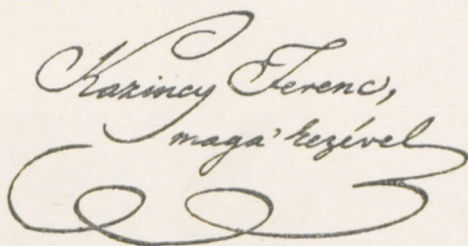 Kazinczy Ferenc,
maga' kezével